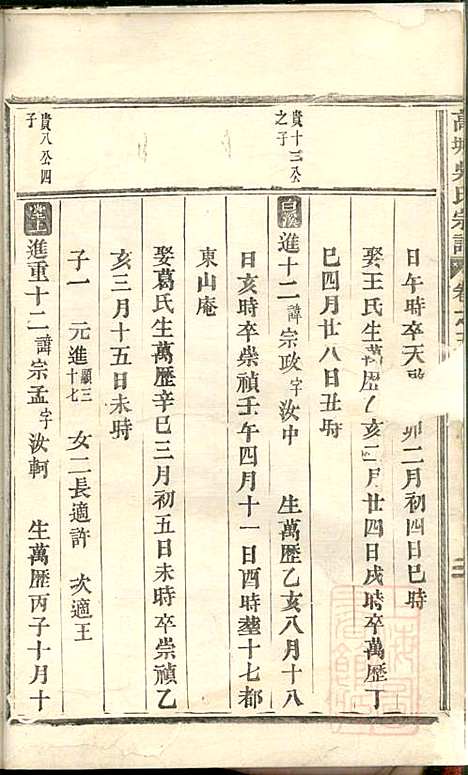 高城吳氏宗譜 卷之五
日午時卒天啟 卯二月初四日巳時
娶王氏生萬歷 亥二月廿四日戌時卒萬歷丁
巳四月廿八日丑時
貴十三公之子
白沙 進十二諱宗政字汝中 生萬歷乙亥八月十八
日亥時卒崇禎壬午四月十一日酉時塟十七都
東山庵
娶葛氏生萬歷辛巳三月初五日未時卒崇禎乙
亥三月十五日未時
子一 元進願三十七 女二長適許 次適王
貴八公四子
堂上 進重十二諱宗孟字汝軻 生萬歷丙子十月十